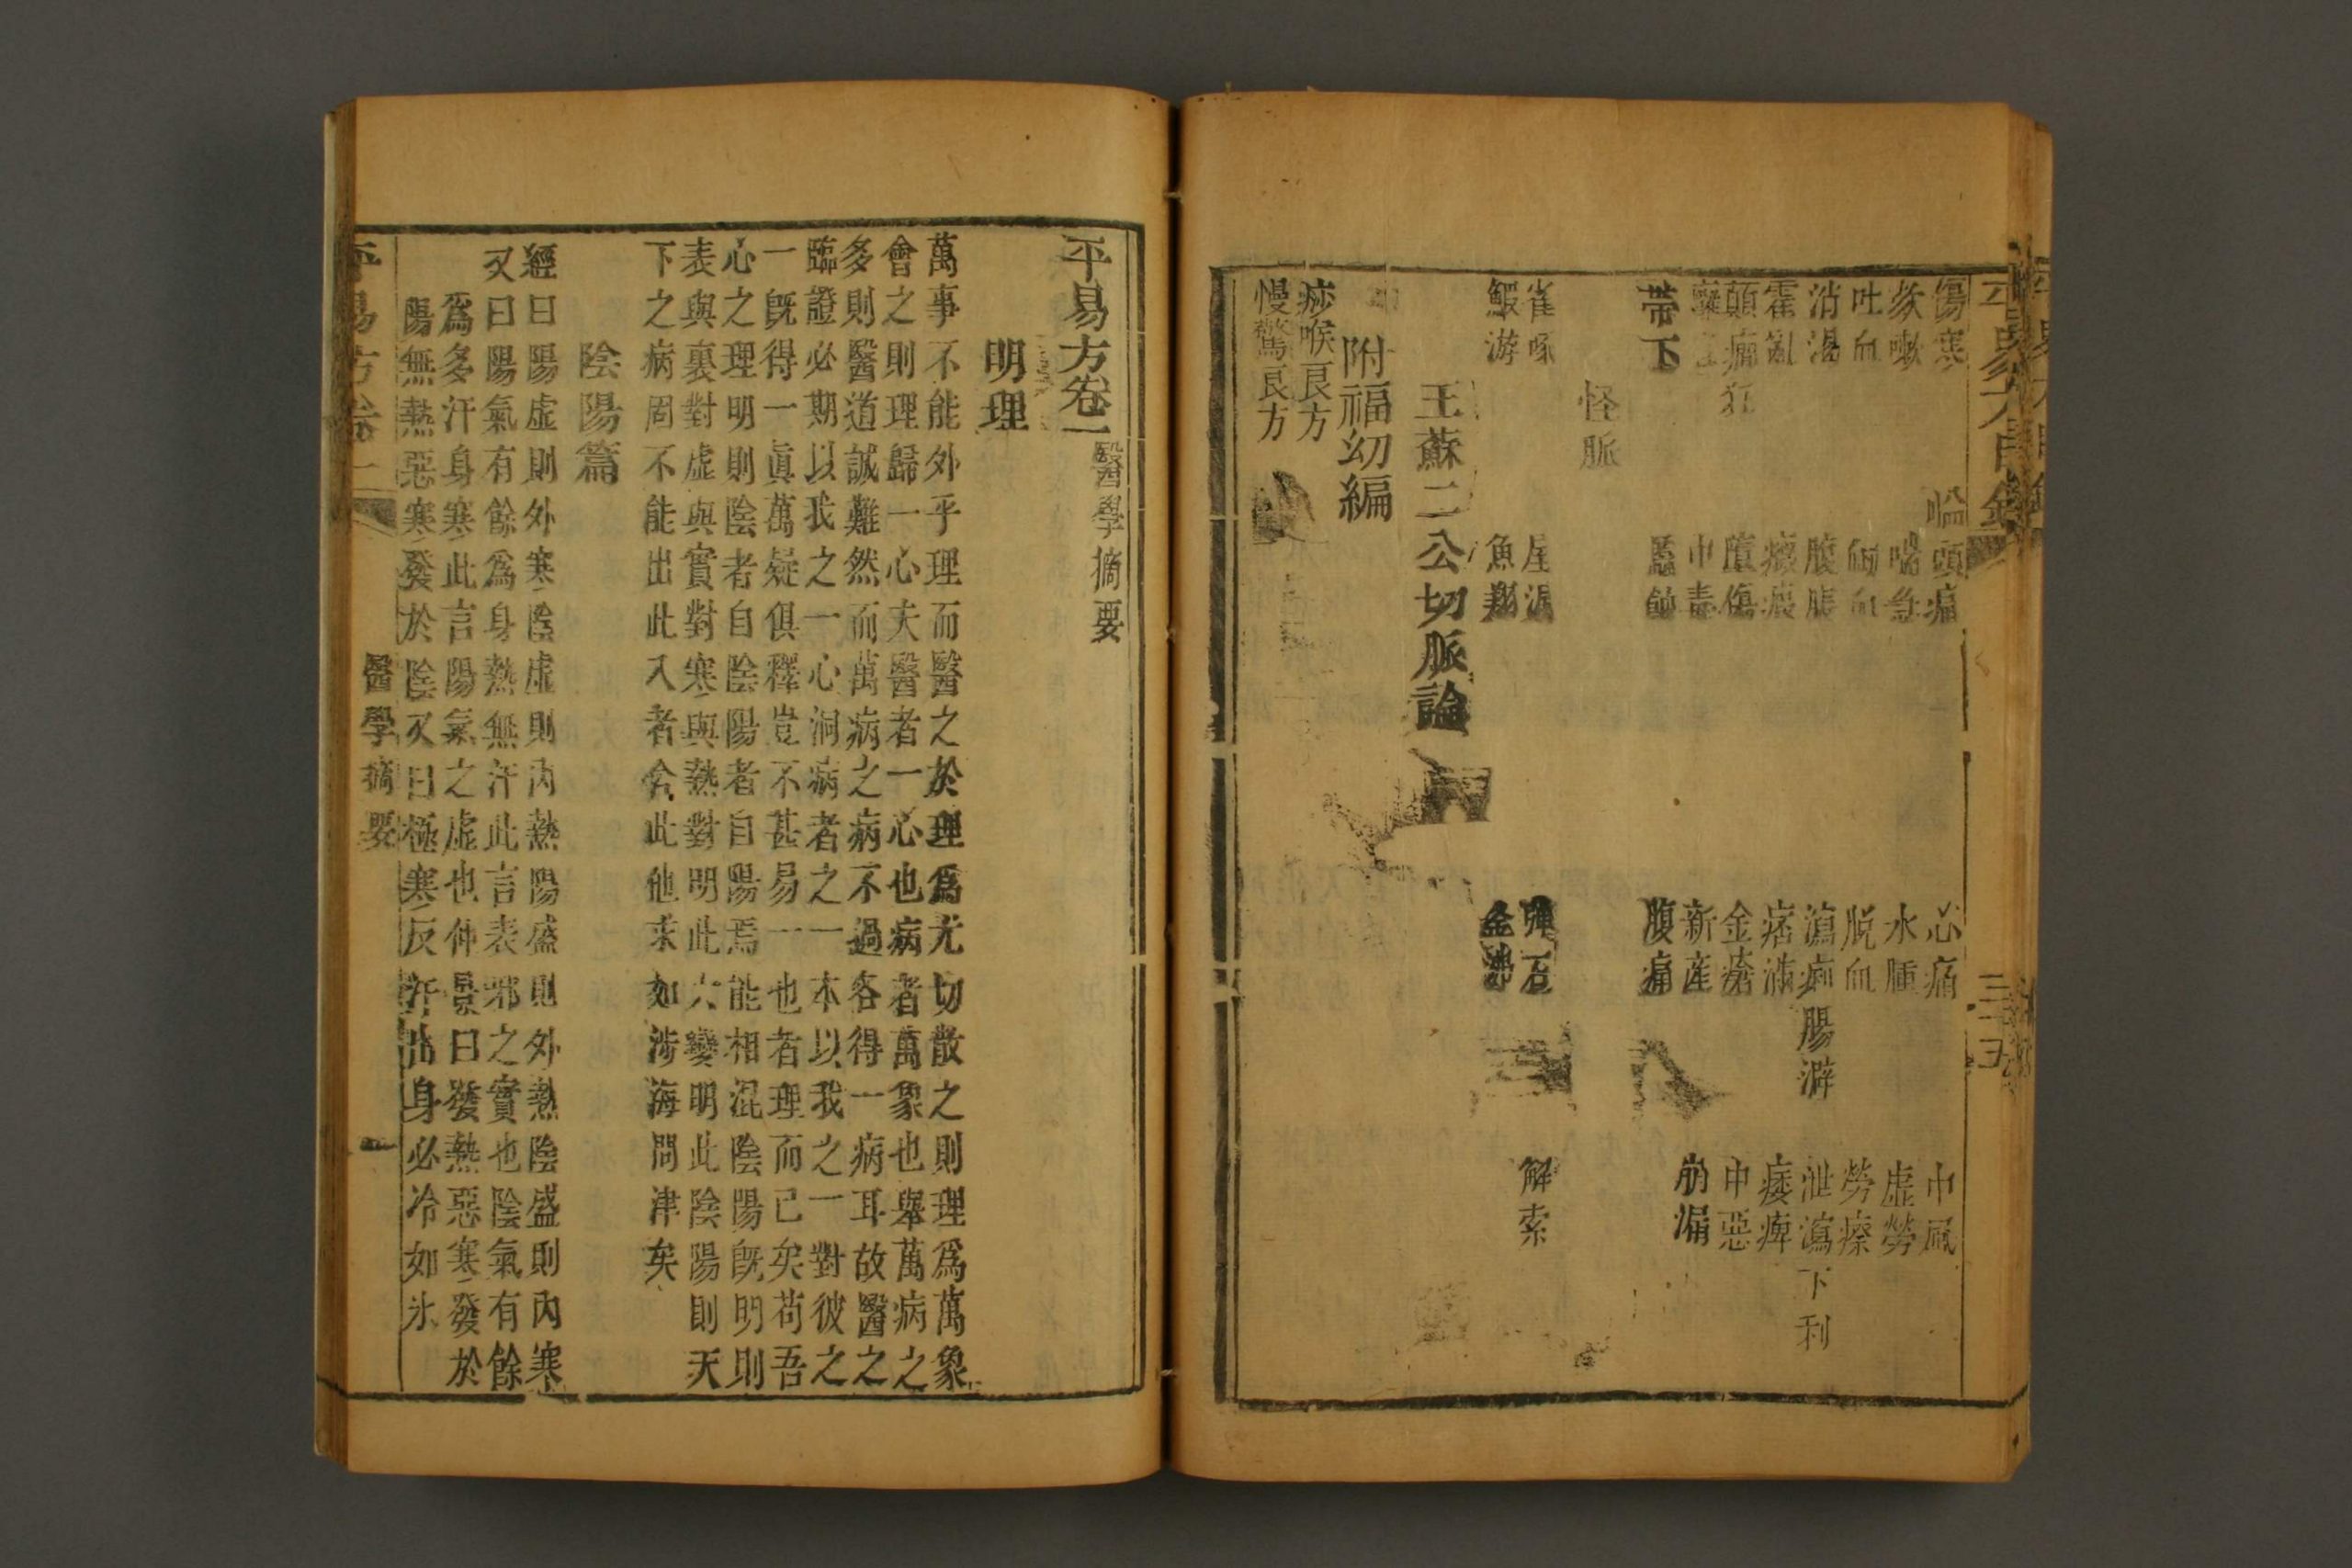 傷寒 頭痛 心痛 中風
欬嗽 喘急 水腫 虛勞
吐血 衄血 脱血 勞瘵
消渴 腹脹 瀉痢腸澼 泄瀉下利
霍亂 痞滿 痿痺
顛癇狂 金瘡 中惡
中毒 新産 崩漏
帶下 腹痛
怪脈
雀啄 屋漏 彈石 解索
鰕游 魚翔 金沸
王蘇二公切脈論
附福幼編
痧喉良方
慢驚良方
平易方卷一
醫學摘要
明理
萬事不能外乎理而醫之於理爲尤切散之則理爲萬象
會之則理歸一心夫醫者一心也病者萬象也舉萬病之
多則醫道誠難然而萬病之病不過各得一病耳故醫之
臨證必期以我之一心洞病者之一本以我之一對彼之
一旣得一眞萬疑俱釋豈不甚易一也者理而已矣苟吾
心之理明則陰者自陰陽者自陽焉能相混陰陽旣明則
表與裏對虛與實對寒與熱對明此六變明此陰陽則天
下之病固不能出此入者合此他求如涉海問津矣
陰陽篇
經曰陽虛則外寒陰虛則內熱陽盛則外熱陰盛則內寒
又曰陽氣有餘爲身熱無汗此言表邪之實也陰氣有餘
爲多汗身寒此言陽氣之虛也仲景曰發熱惡寒發於
陽無熱惡寒發於陰又曰極寒反汗出身必冷如氷
平易方卷一 醫學摘要 一